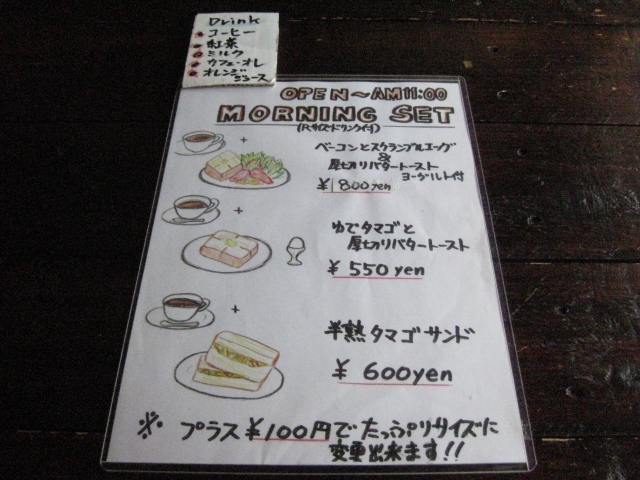 Drink
コーヒー
紅茶
ミルク
カフェ・オレ
オレンジ
ジュース
OPEN～AM11:00
MORNING SET
(Rサイズドリンク付)
ベーコンとスクランブルエッグ
&
厚切りバタートースト
ヨーグルト付
¥800yen
ゆでタマゴと
厚切りバタートースト
¥550yen
半熟タマゴサンド
¥600yen
※プラス¥100円でたっぷりサイズに
変更出来ます!!